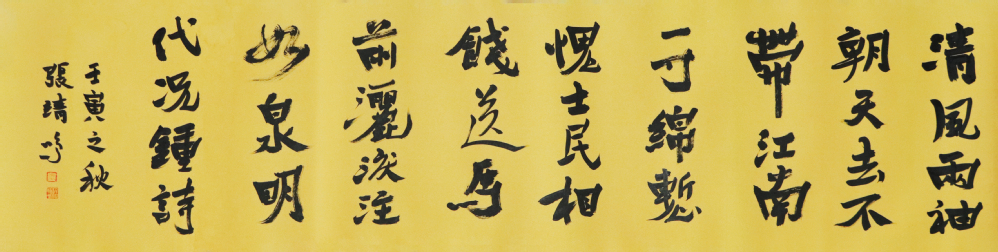 清風兩袖
朝天去不
帶江南
一寸綿慙
愧士民相
餞送馬
前灑淚注
如泉明
代况鍾詩
壬寅之秋
張靖鳴